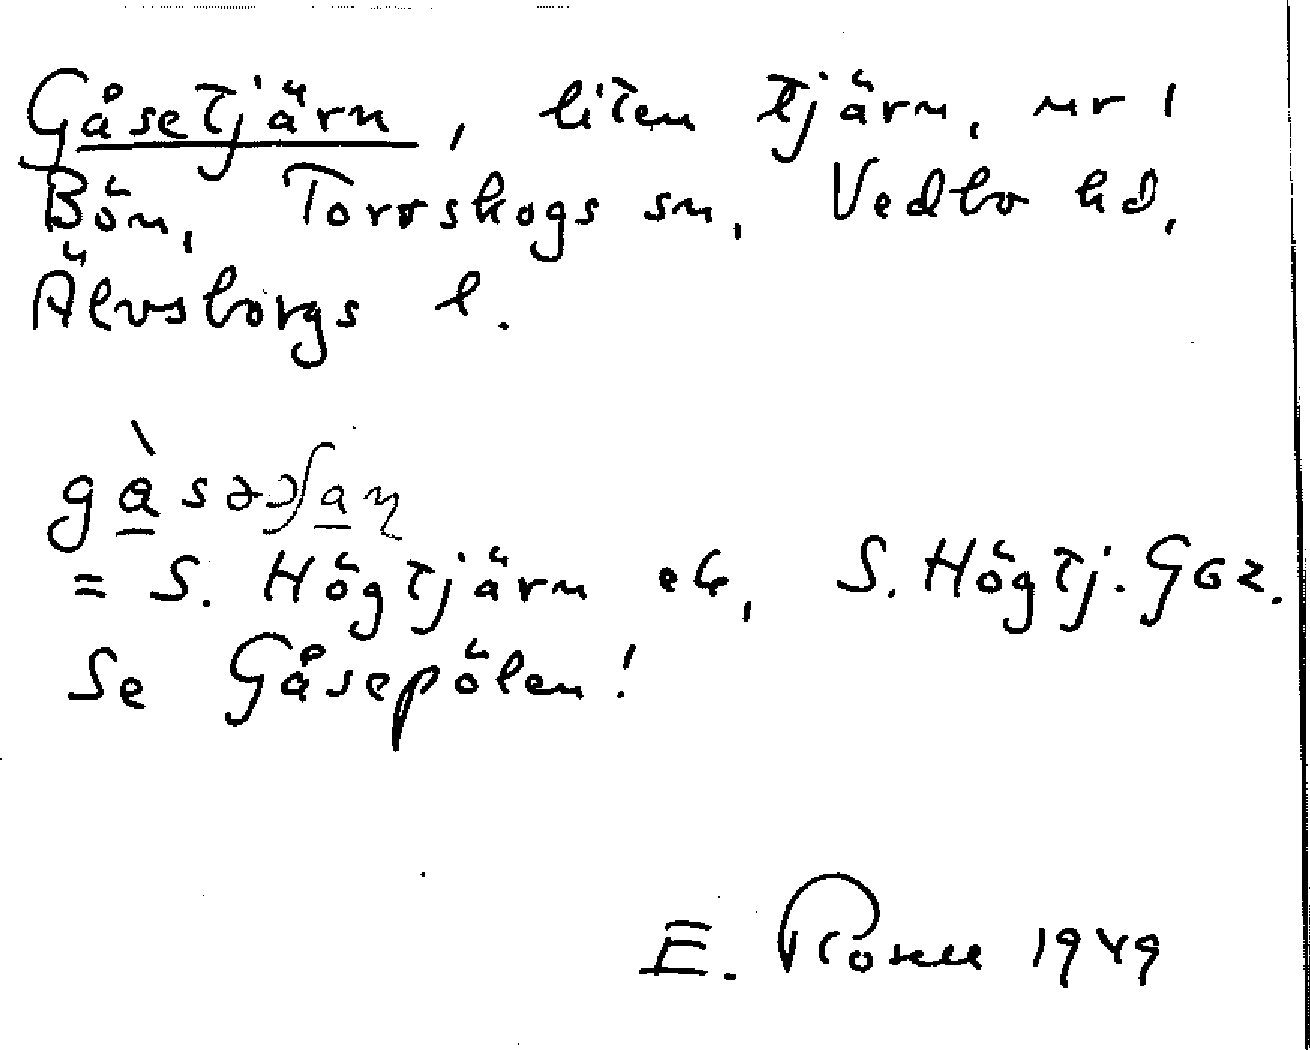 Gåsetjärn, liten tjärn, nr 1
Bön, Torrskogs sn, Vedbo hd,
Älvsborgs l.
= S. Högtjärn ek, S. Högtj. G62.
Se Gåsepölen!
E. Rosell 1949